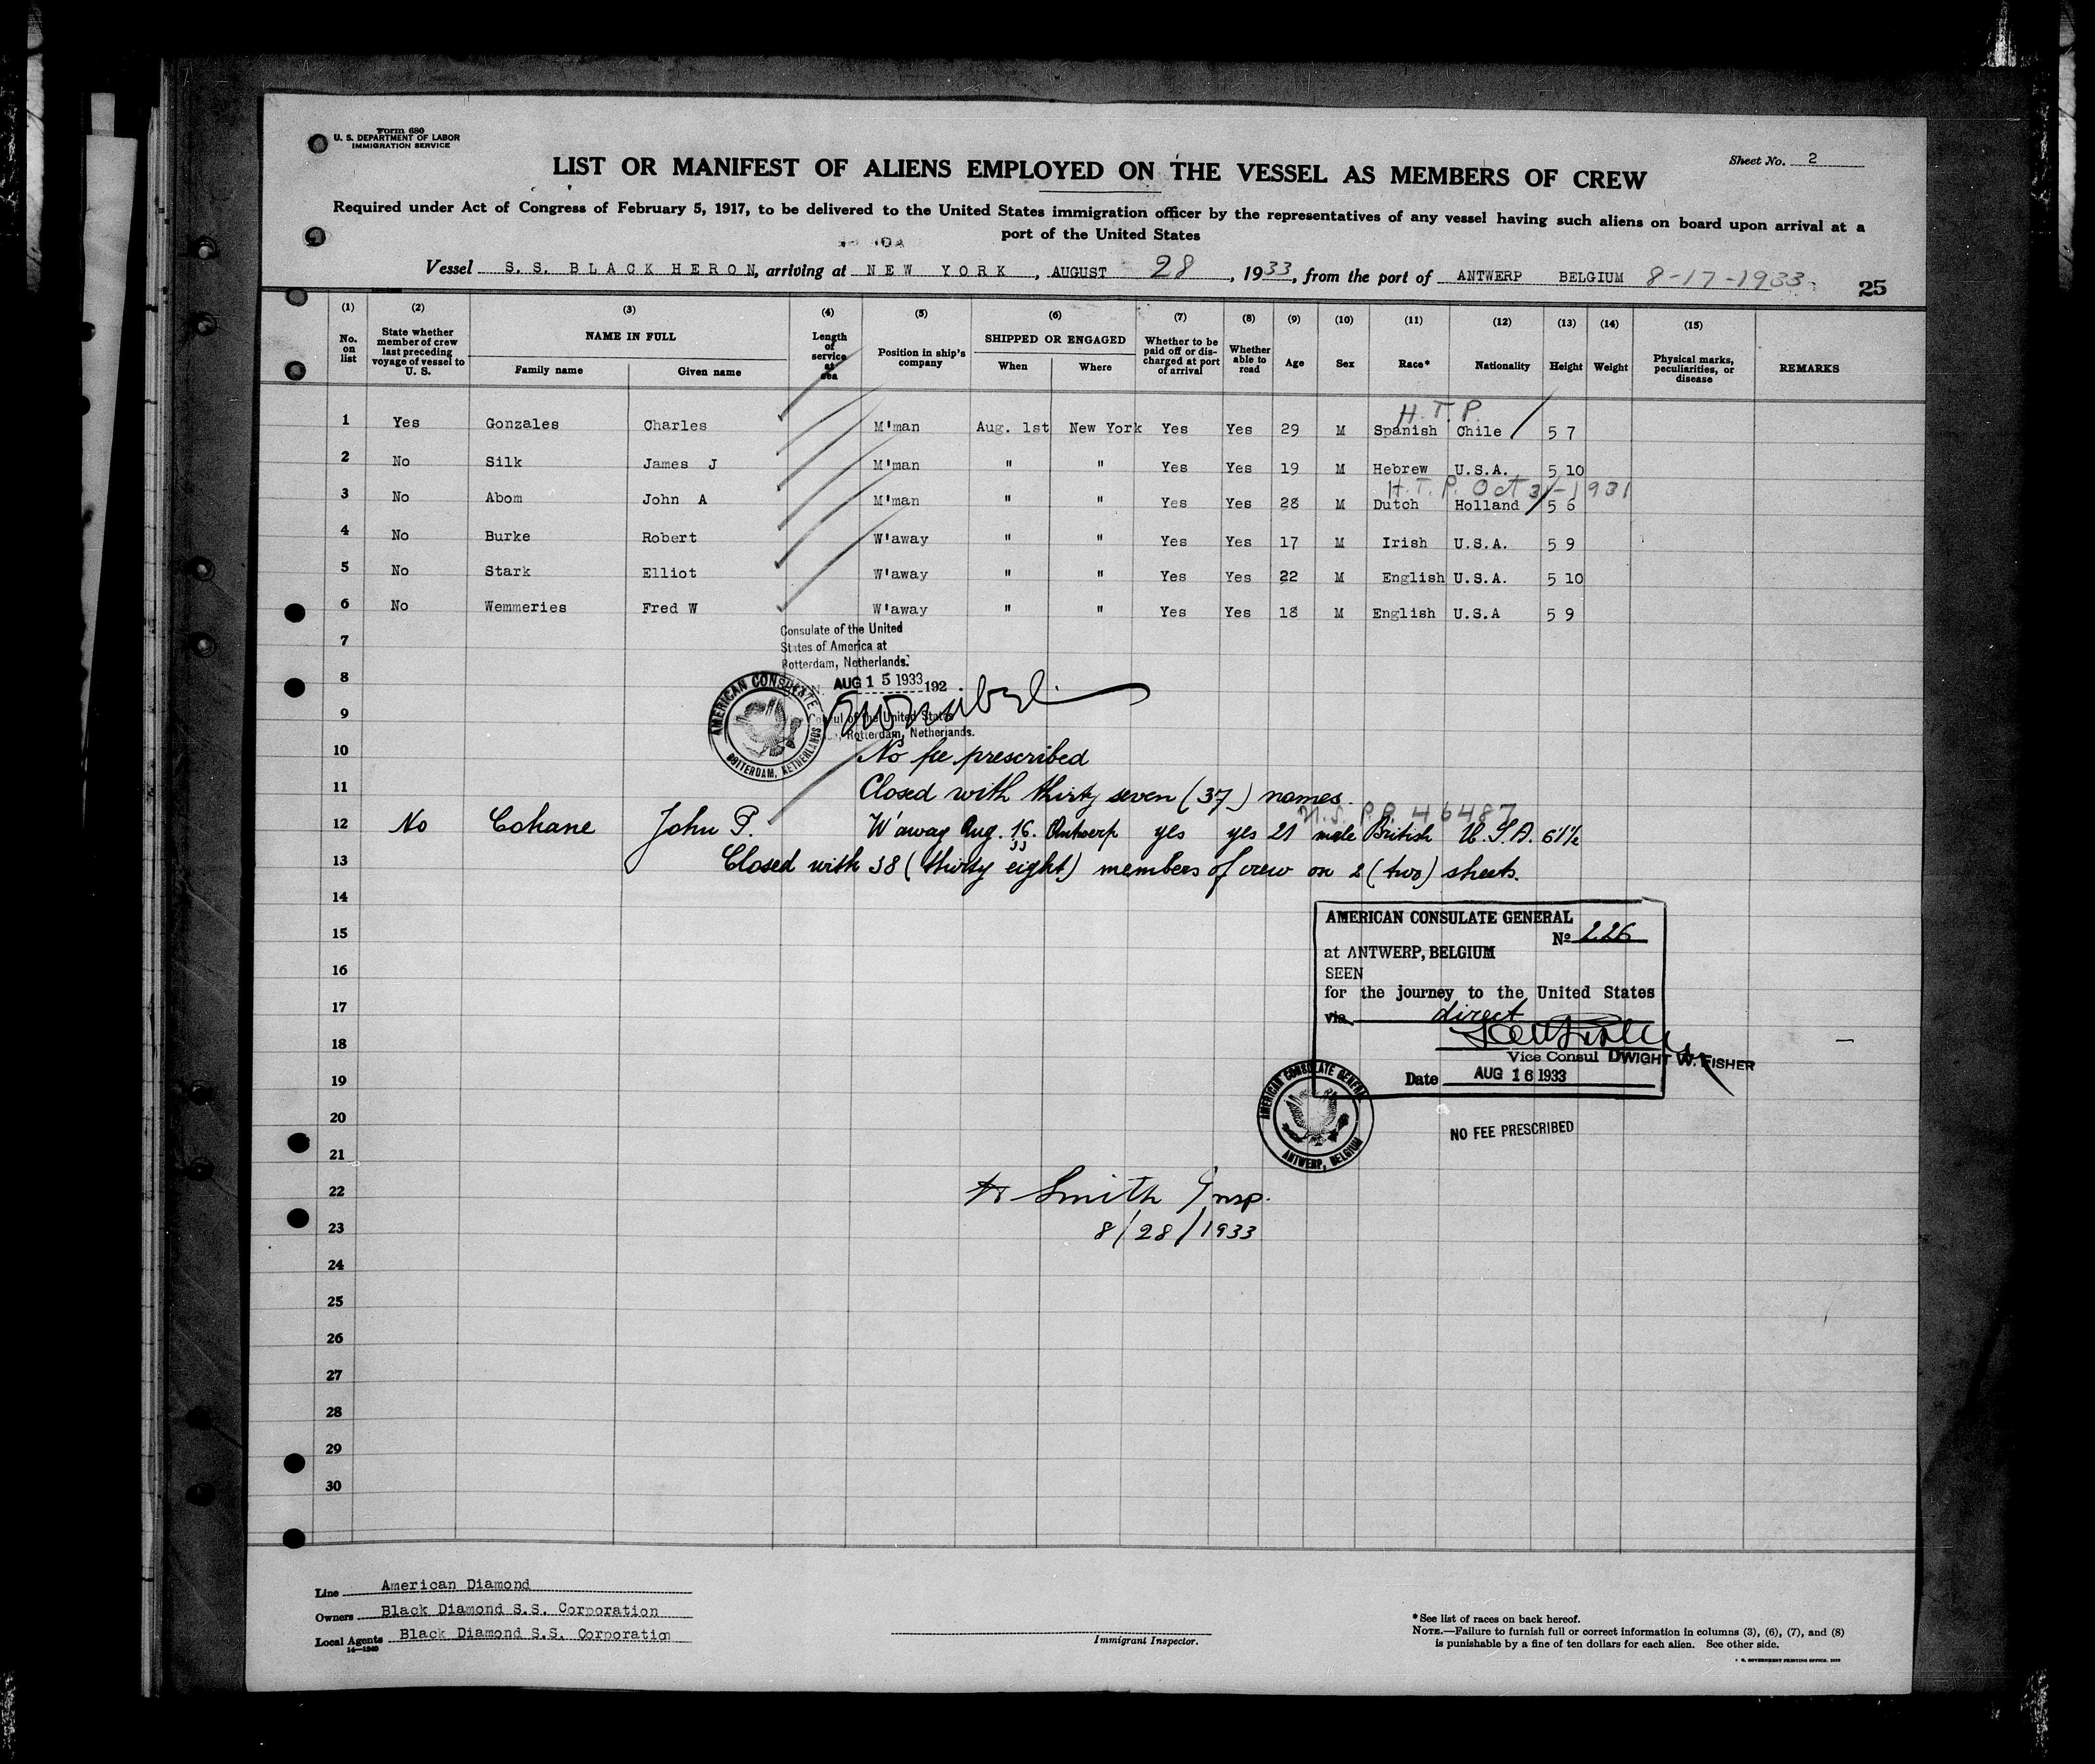 Form 680
U. S. DEPARTMENT OF LABOR
IMMIGRATION SERVICE
Sheet No. 2
LIST OR MANIFEST OF ALIENS EMPLOYED ON THE VESSEL AS MEMBERS OF CREW
Required under Act of Congress of February 5, 1917, to be delivered to the United States immigration officer by the representatives of any vessel having such aliens on board upon arrival at a
port of the United States
Vessel S. S. BLACK HERON, arriving at NEW YORK, AUGUST 28, 1933, from the port of ANTWERP BELGIUM 8-17-1933.
25
(1) (2) (3) (4) (5) (6) (7) (8) (9) (10) (11) (12) (13) (14) (15)
No. on list
State whether member of crew last preceding voyage of vessel to U. S.
NAME IN FULL
Family name
Given name
Length of service at sea
Position in ship's company
SHIPPED OR ENGAGED
When
Where
Whether to be paid off or discharged at port of arrival
Whether able to read
Age
Sex
Race*
Nationality
Height
Weight
Physical marks, peculiarities, or disease
REMARKS
H. T. P.
1 Yes Gonzales Charles M'man Aug. 1st New York Yes Yes 29 M Spanish Chile 5 7
2 No Silk James J M'man " " Yes Yes 19 M Hebrew U.S.A. 5 10
H. T. P. Oct 31-1931
3 No Abom John A M'man " " Yes Yes 28 M Dutch Holland 5 6
4 No Burke Robert W'away " " Yes Yes 17 M Irish U.S.A. 5 9
5 No Stark Elliot W'away " " Yes Yes 22 M English U.S.A. 5 10
6 No Wemmeries Fred W W'away " " Yes Yes 18 M English U.S.A 5 9
7
Consulate of the United
States of America at
Rotterdam, Netherlands.
8
AUG 15 1933 192
AMERICAN CONSULATE
ROTTERDAM, NETHERLANDS
9
of the United States
Rotterdam, Netherlands.
10 No fee prescribed
11 Closed with thirty seven (37) names.
U.S. P.P. 46487
12 No Cohane John P. W'away Aug. 16. 33 Antwerp yes yes 21 male British U.S.A. 6 1½
13 Closed with 38 (thirty eight) members of crew on 2 (two) sheets.
14
AMERICAN CONSULATE GENERAL
15
No 226
at ANTWERP, BELGIUM
16
SEEN
for the journey to the United States
17
via direct
18
Vice Consul DWIGHT W. FISHER
19
Date AUG 16 1933
AMERICAN CONSULATE GENERAL
ANTWERP, BELGIUM
20
NO FEE PRESCRIBED
21
22 Smith Insp.
23 8/28/1933
24
25
26
27
28
29
30
Line American Diamond
Owners Black Diamond S.S. Corporation
Local Agents Black Diamond S.S. Corporation
14—1240
Immigrant Inspector.
*See list of races on back hereof.
NOTE.—Failure to furnish full or correct information in columns (3), (6), (7), and (8)
is punishable by a fine of ten dollars for each alien. See other side.
GOVERNMENT PRINTING OFFICE